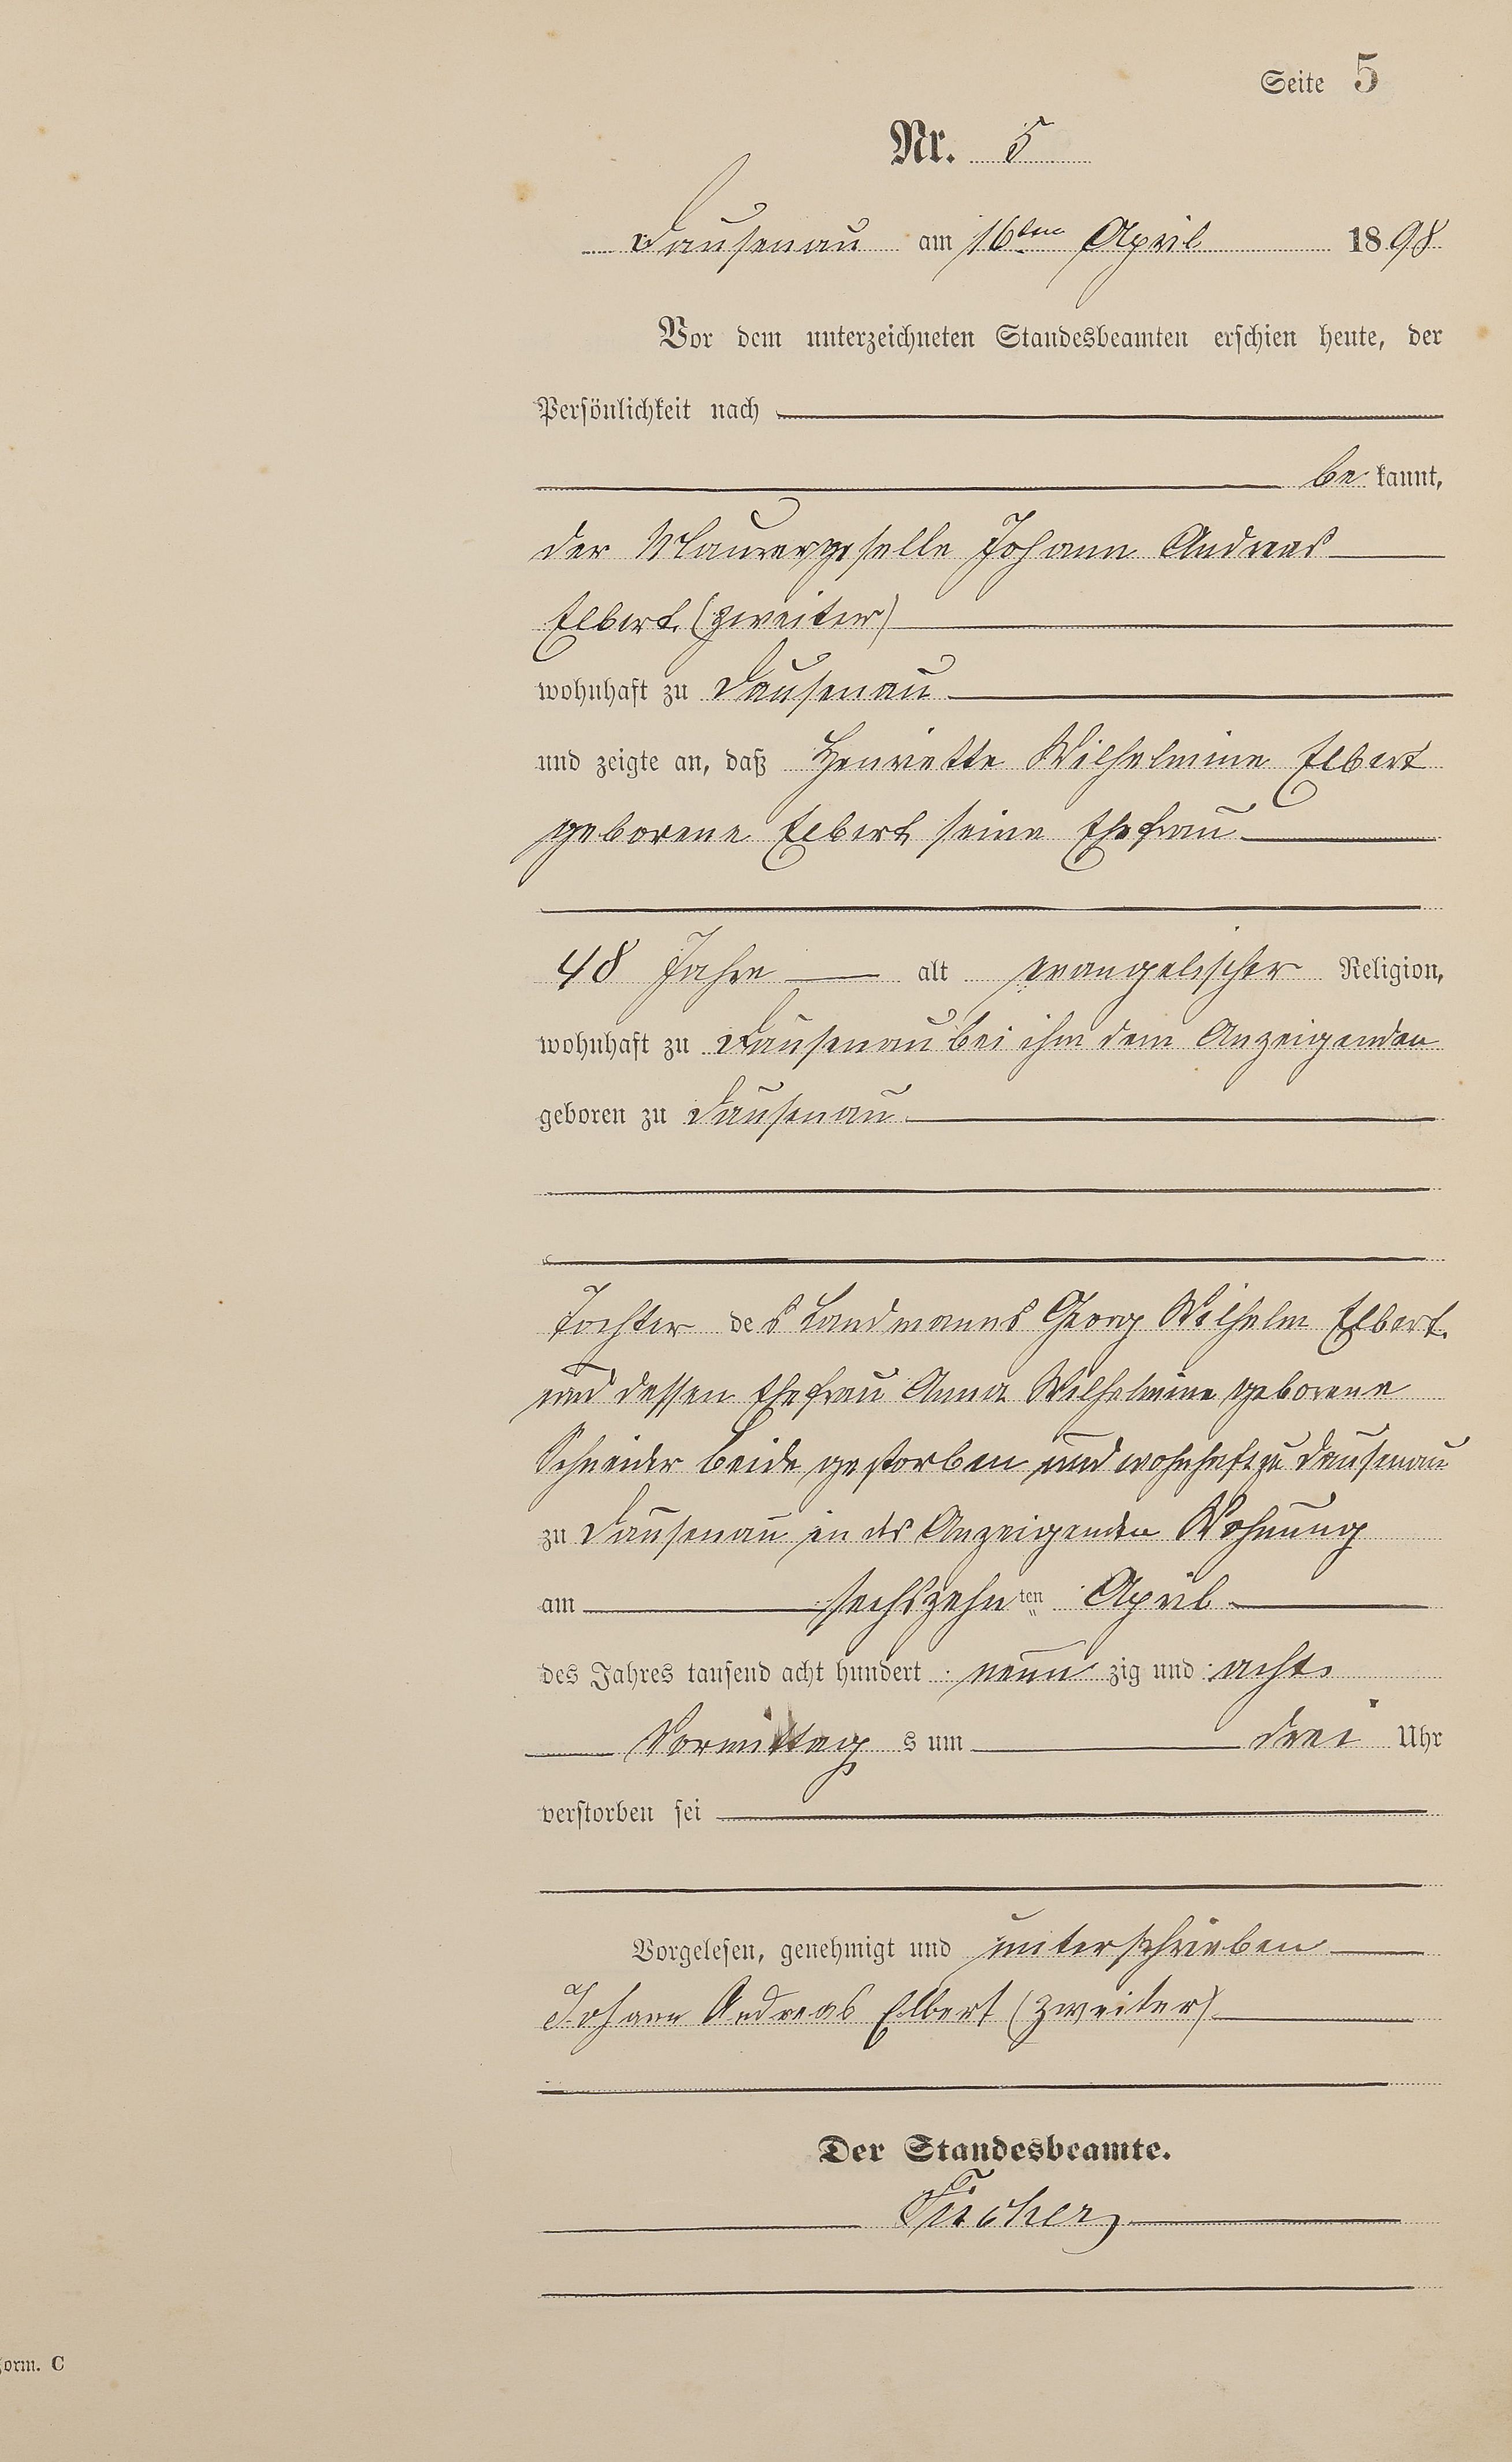 Seite 5
Nr. 5
Dausenau am 16ten April 1898
Vor dem unterzeichneten Standesbeamten erschien heute, der
Persönlichkeit nach
be kannt,
der Maurergeselle Johann Andreas
Elbert (zweiter)
wohnhaft zu Dausenau
und zeigte an, daß Henriette Wilhelmine Elbert
geborene Elbert seine Ehefrau
48 Jahre alt evangelischer Religion,
wohnhaft zu Dausenau bei ihm dem Anzeigenden
geboren zu Dausenau
Tochter des Landmanns Georg Wilhelm Elbert
und dessen Ehefrau Anna Wilhelmine geborene
Schneider beide gestorben und wohnhaft zu Dausenau
zu Dausenau in des Anzeigenden Wohnung
am sechszehnten April
des Jahres tausend acht hundert neun zig und acht
Vormittag s um drei Uhr
verstorben sei
Vorgelesen, genehmigt und unterschrieben
Johann Andreas Elbert (zweiter)
Der Standesbeamte.
Form. C